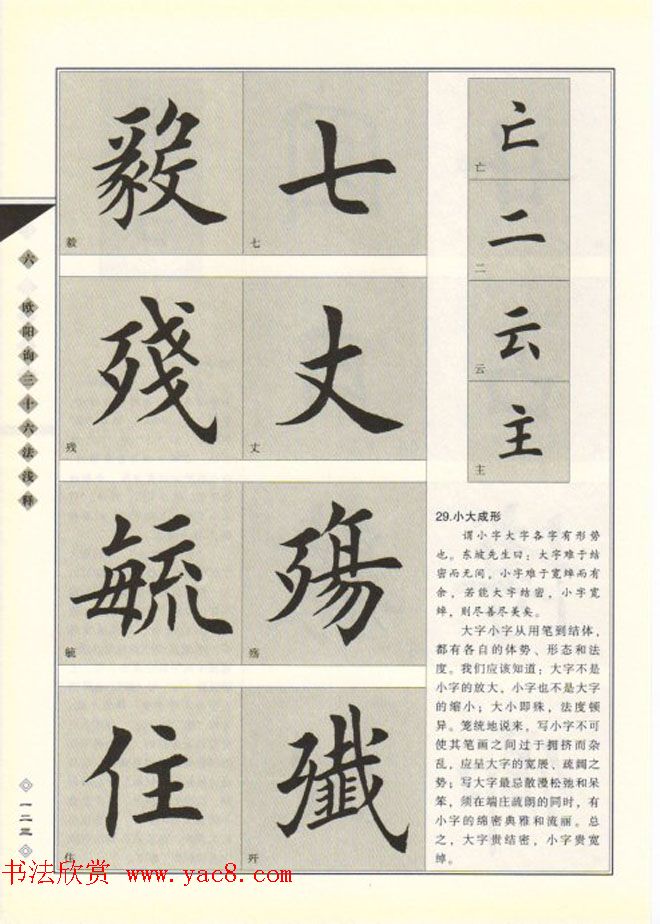 毅
毅
七
七
亡
亡
二
二
云
云
主
主
殘
残
丈
丈
毓
毓
殤
殇
住
住
殱
歼
六 欧阳询三十六法浅释
29.小大成形
谓小字大字各字有形势
也。东坡先生曰：大字难于结
密而无间，小字难于宽绰而有
余，若能大字结密，小字宽
绰，则尽善尽美矣。
大字小字从用笔到结体，
都有各自的体势、形态和法
度。我们应该知道：大字不是
小字的放大，小字也不是大字
的缩小；大小即殊，法度顿
异。笼统地说来，写小字不可
使其笔画之间过于拥挤而杂
乱，应呈大字的宽展、疏阔之
势；写大字最忌散漫松弛和呆
笨，须在端庄疏朗的同时，有
小字的绵密典雅和流丽。总
之，大字贵结密，小字贵宽
绰。
一二三
书法欣赏 www.yac8.com